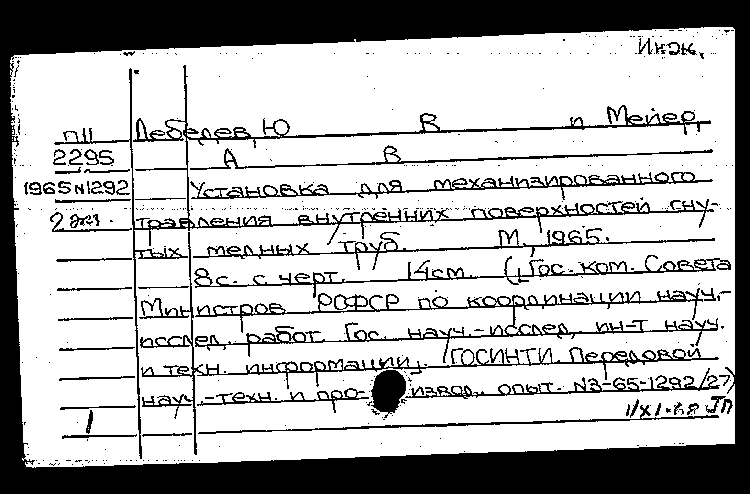 Инж.
П11 Лебедев, Ю В и Мейер,
2295 А В
1965 N1292 Установка для механизированного
2 экз. травления внутренних поверхностей гну-
тых медных труб. М., 1965.
8 с. с черт. 14 см. (Гос. ком. Совета
Министров РСФСР по координации науч.-
исслед. работ. Гос. науч.-исслед. ин-т науч.
и техн. информации. ГОСИНТИ. Передовой
науч.-техн. и про-извод. опыт. N3-65-1292/27)
1 1/XI-68 ТП